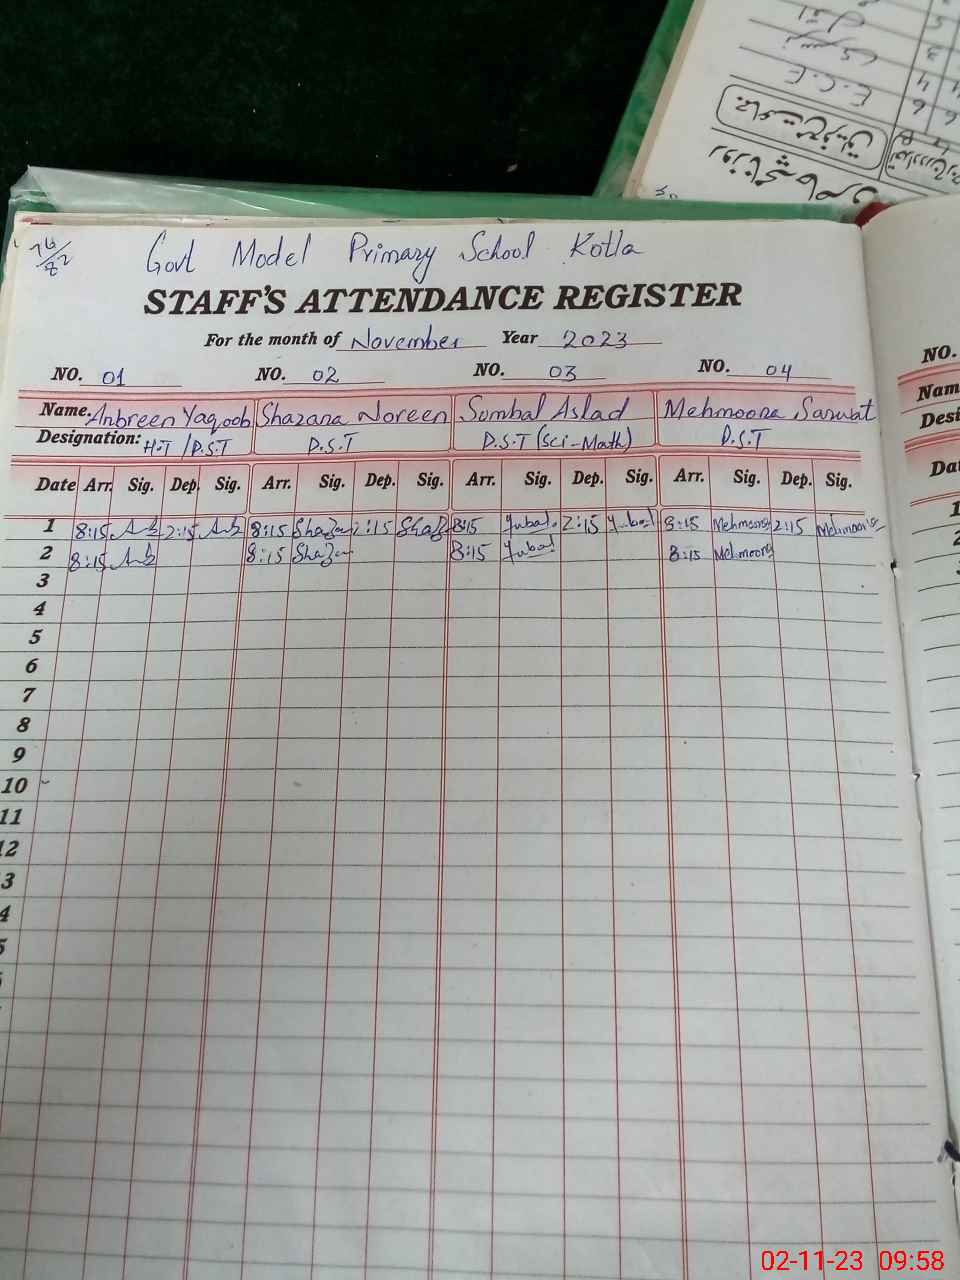 Govt Model Primary School Kotla
STAFF'S ATTENDANCE REGISTER
For the month of November Year 2023
NO. 01 NO. 02 NO. 03 NO. 04
Name. Anbreen Yaqoob Shazana Noreen Sumbal Aslad Mehmoona Sarwat
Designation: H.T / P.S.T P.S.T P.S.T (Sci-Math) P.S.T
Date Arr. Sig. Dep. Sig. Arr. Sig. Dep. Sig. Arr. Sig. Dep. Sig. Arr. Sig. Dep. Sig.
1 8:15 2:15 8:15 2:15 8:15 2:15 8:15 Mehmoona 2:15 Mehmoona
2 8:15 8:15 8:15 8:15 Mehmoona
3
4
5
6
7
8
9
10
11
12
3
4
5
NO.
Nam
Desi
Da
1
2
E.C.E
02-11-23 09:58